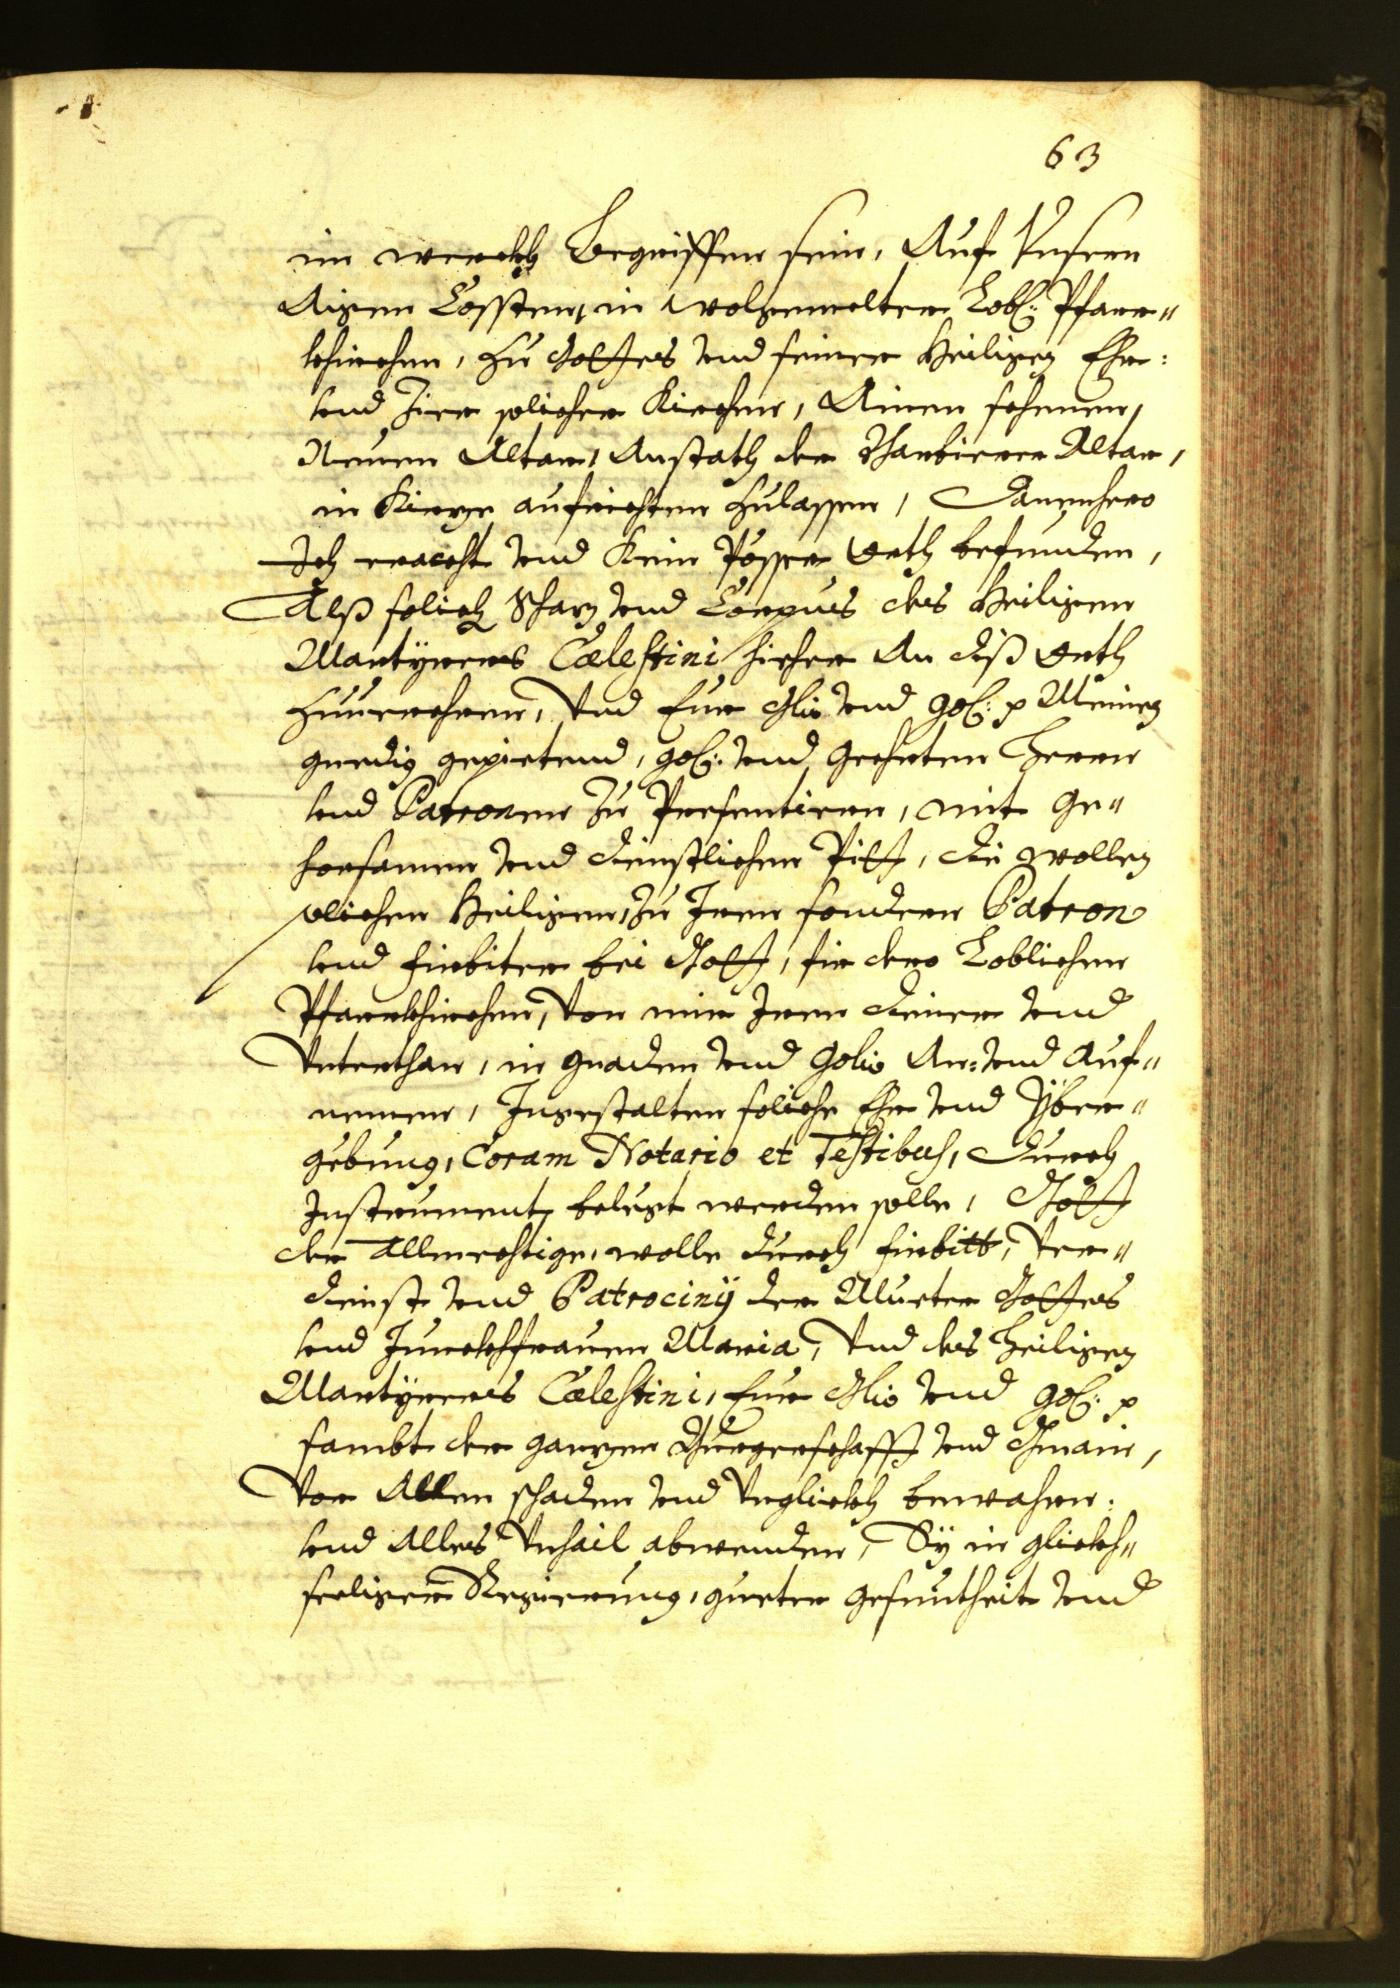 63
im werckh begriffen sein, Auf Unsern
Aignen Cossten, in wolgemelter Lobl: Pfarr-
khirchen, zu Gottes und seiner Heiligen Ehr:
und Zier solicher Kirchen, Ainen schenen,
Neuen Altar, Anstath der Barbierer Altar,
in Kirze aufrichten zulassen, Dannenhero
Ich eracht und kein pesser Orth befunden,
Alß solich Schaz und Corpus des Heiligen
Martyrers Cælestini hieher An diß Orth
zuuerehren, Und Eur Gn: und gl: p Meinen
gnedig gepietend, gl: und geehrten Herrn
und Patronen zu Presentiren, mit ge-
horsamen und dienstlichen Pitt, die wollen
solichen Heiligen, zu Iren sondern Patron
und fürbiter bei Gott, für dero Loblichen
Pfarrkhirchen, von mir Iren diener und
Unterthan, in gnaden und An: und Auf-
nemen, Ingestalten soliche Ehr und Yber-
gebung, Coram Notario et Testibus, durch
Instrument, werden solle, Gott
der Allmechtige, wolle durch fürbitt, Ver-
dienst und Patrociny der Mueter Gottes
und Junckhfrauen Maria, Und des Heiligen
Martyrers Cælestini, Eur Gn: und gl: p
sambt der ganzen Burgerschafft und Gmain,
Vor Allen schaden und Unglickh bewahren:
und Alles Unhail abwenden, Sy in glickh-
seeliger Regierung, gueter gesuntheit und